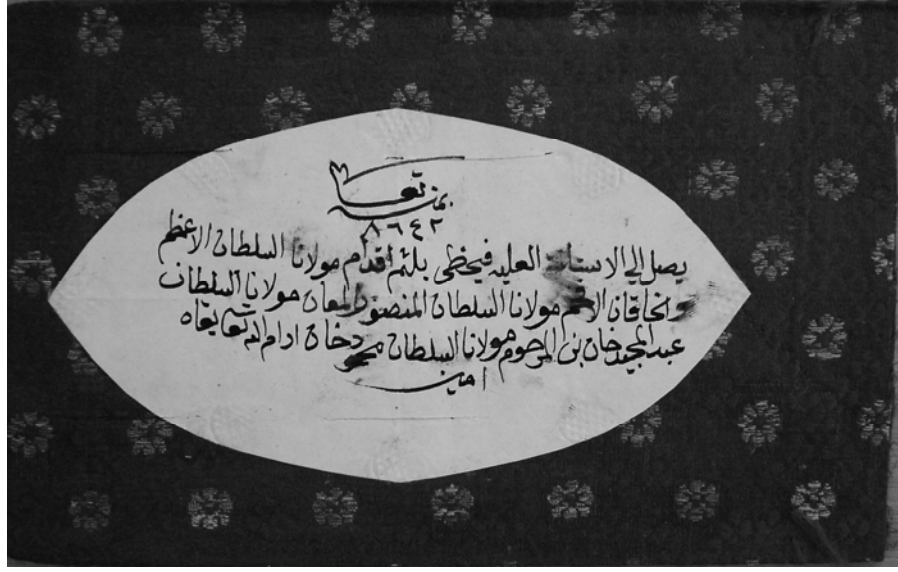 بمنه تعا
٨٦٤٢
يصل الي الاستانة العليه فيحظى بلثم اقدام مولانا السلطان الاعظم
والخاقان الافخم مولانا السلطان المنصور المعان مولانا السلطان
عبد المجيد خان بن المرحوم مولانا السلطان محمود خان ادام الله تعا بقاه
امين